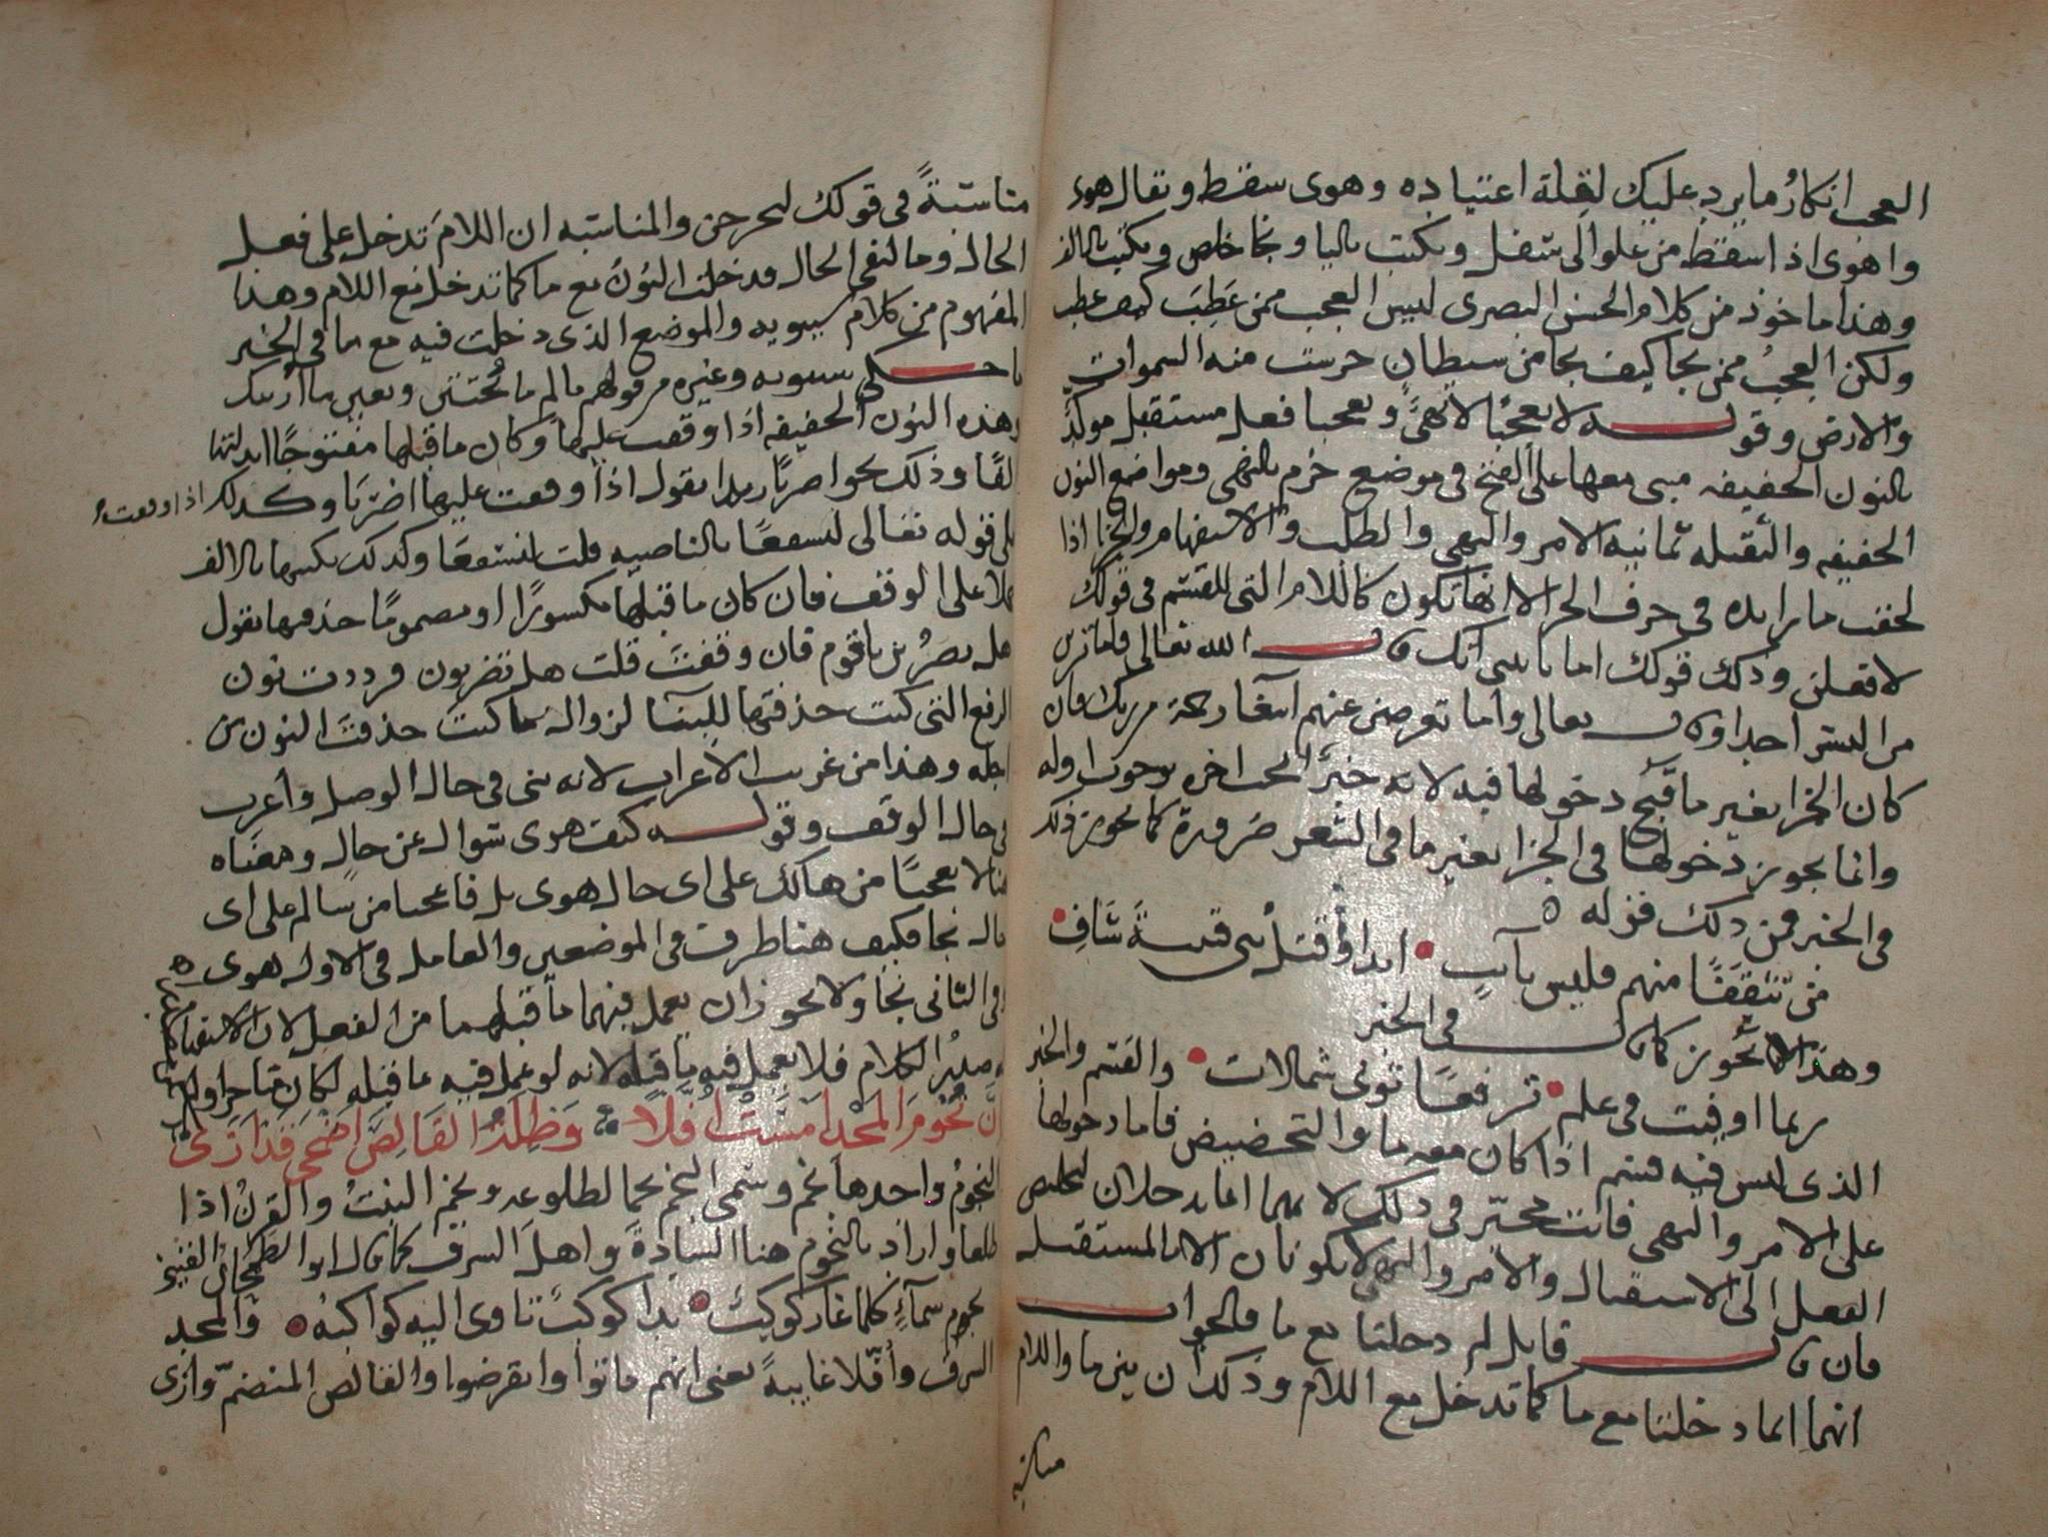 العجب انكار ما يرد عليك لقلة اعتياده وهوى سقط ويقال هوى
واهوى اذا سقط من علو الى سفل ويكتب باليا ونجا خلص ويكتب بالالف
وهذا ماخوذ من كلام الحسن البصرى ليس العجب ممن عطب كيف عطب
ولكن العجب ممن نجا كيف نجا من سيطان حرست منه السموات
والارض وقوله لا تعجبا لا نهى وتعجبا فعل مستقبل موكد
بالنون الخفيفه مبنى معها على الفتح فى موضع جزم بالنهى ومواضع النون
الخفيفه والثقيله ثمانيه الامر والنهى والطلب والاستفهام والجزا اذا
لحقت ما زايده فى حرف الجزا لانها تكون كاللام التى للقسم فى قولك
لافعلن وذلك قولك اما تاتينى آتك قال الله تعالى فاما ترين
من البشر احدا وقال تعالى واما تعرضن عنهم ابتغا رحمة من ربك فان
كان الجزا بغير ما قبح دخولها فيه لانه خبر يجب اخره بوجوب اوله
وانما يجوز دخولها فى الجزا بغير ما فى الشعر ضرورة كما يجوز ذلك
فى الخبر فمن ذلك قوله ه
من تثقفا منهم فليس بآيب • ابدا وقتل بنى قتيبة شاف •
وهذا لا يجوز كما قال فى الخبر
ربما اوفيت فى علم • ترفعا ثوبى شمالات • والقسم والخبر
الذى ليس فيه قسم اذا كان معه ما والتحضيض فاما دخولها
على الامر والنهى فانت مخير فى ذلك لانهما انما يدخلان لتخليص
الفعل الى الاستقبال والامر والنهى لا يكونان الا للمستقبل
فان قال قايل لم دخلتا مع ما فالجواب
انهما انما دخلتا مع ما كما تدخل مع اللام وذلك ان بين ما واللام
مناسبة
مناسبة فى قولك لتخرجن والمناسبه ان اللام تدخل على فعل
الحال وما لنفى الحال فدخلت النون مع ما كما تدخل مع اللام وهذا
المفهوم من كلام سيبويه والموضع الذى دخلت فيه مع ما فى الخبر
ما حكى سيبويه وغيره من قولهم بالم ما تختننن وبعين ما ارينك
وهذه النون الخفيفه اذا وقفت عليها وكان ما قبلها مفتوحا ابدلتها
الفا وذلك نحو اضربا زيدا تقول اذا وقفت عليها اضربا وكذلك اذا وقفت
على قوله تعالى لنسفعا بالناصيه قلت لنسفعا وكذلك تكتبها بالالف
حملا على الوقف فان كان ما قبلها مكسورا او مضموما حذفتها تقول
هل تضربن يا قوم فان وقفت قلت هل تضربون فرددت نون
الرفع التى كنت حذفتها للبنا لزوال ما كنت حذفت النون من
اجله وهذا من غريب الاعراب لانه بنى فى حال الوصل واعرب
فى حال الوقف وقوله كيف هوى سوال عن حال ومعناه
هنا لا تعجبا من هالك على اى حال هوى بل فاعجبا من سالم على اى
حال نجا فكيف هنا ظرف فى الموضعين والعامل فى الاول هوى
وفى الثانى نجا ولا يجوز ان يعمل فيهما ما قبلهما من الفعل لان الاستفهام
له صدر الكلام فلا يعمل فيه ما قبله لانه لو عمل فيه ما قبله لكان
ان نجوم المجد امست افلا وظله القالص اضحى قد ازى
النجوم واحدها نجم وسمى النجم نجما لطلوعه ونجم النبت والقرن اذا
طلعا واراد بالنجوم هنا السادة واهل الشرف كما قال ابو الطمحان القينى
نجوم سمآء كلما غار كوكب • بدا كوكب تاوى اليه كواكبه • والمجد
الشرف وأفلا غايبة يعنى انهم ماتوا وانقرضوا والقالص المنضم وازى